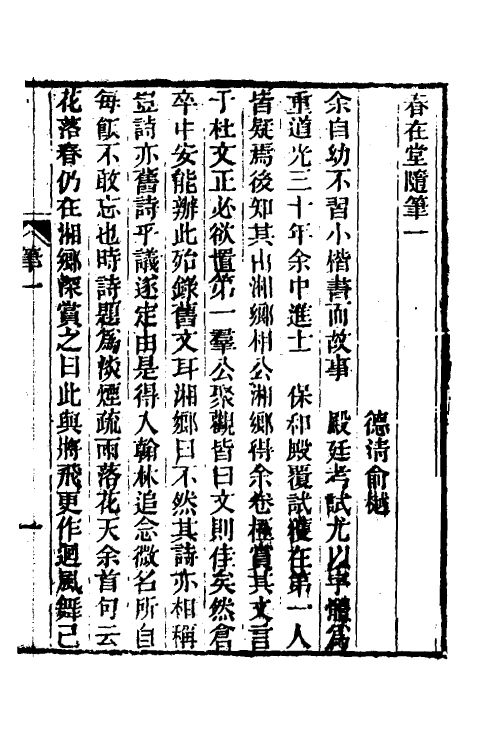 春在堂隨筆一
德淸俞樾
余自幼不習小楷書而故事　殿廷考試尤以字體爲
重道光三十年余中進士　保和殿覆試獲在第一人
皆疑焉後知其出湘鄉相公湘鄉得余卷極賞其文言
于杜文正必欲置第一羣公聚觀皆曰文則佳矣然倉
卒中安能辦此殆錄舊文耳湘鄉曰不然其詩亦相稱
豈詩亦舊詩乎議遂定由是得入翰林追念微名所自
每飯不敢忘也時詩題爲淡煙疏雨落花天余首句云
花落春仍在湘鄉深賞之曰此與將飛更作迴風舞已
筆一
一